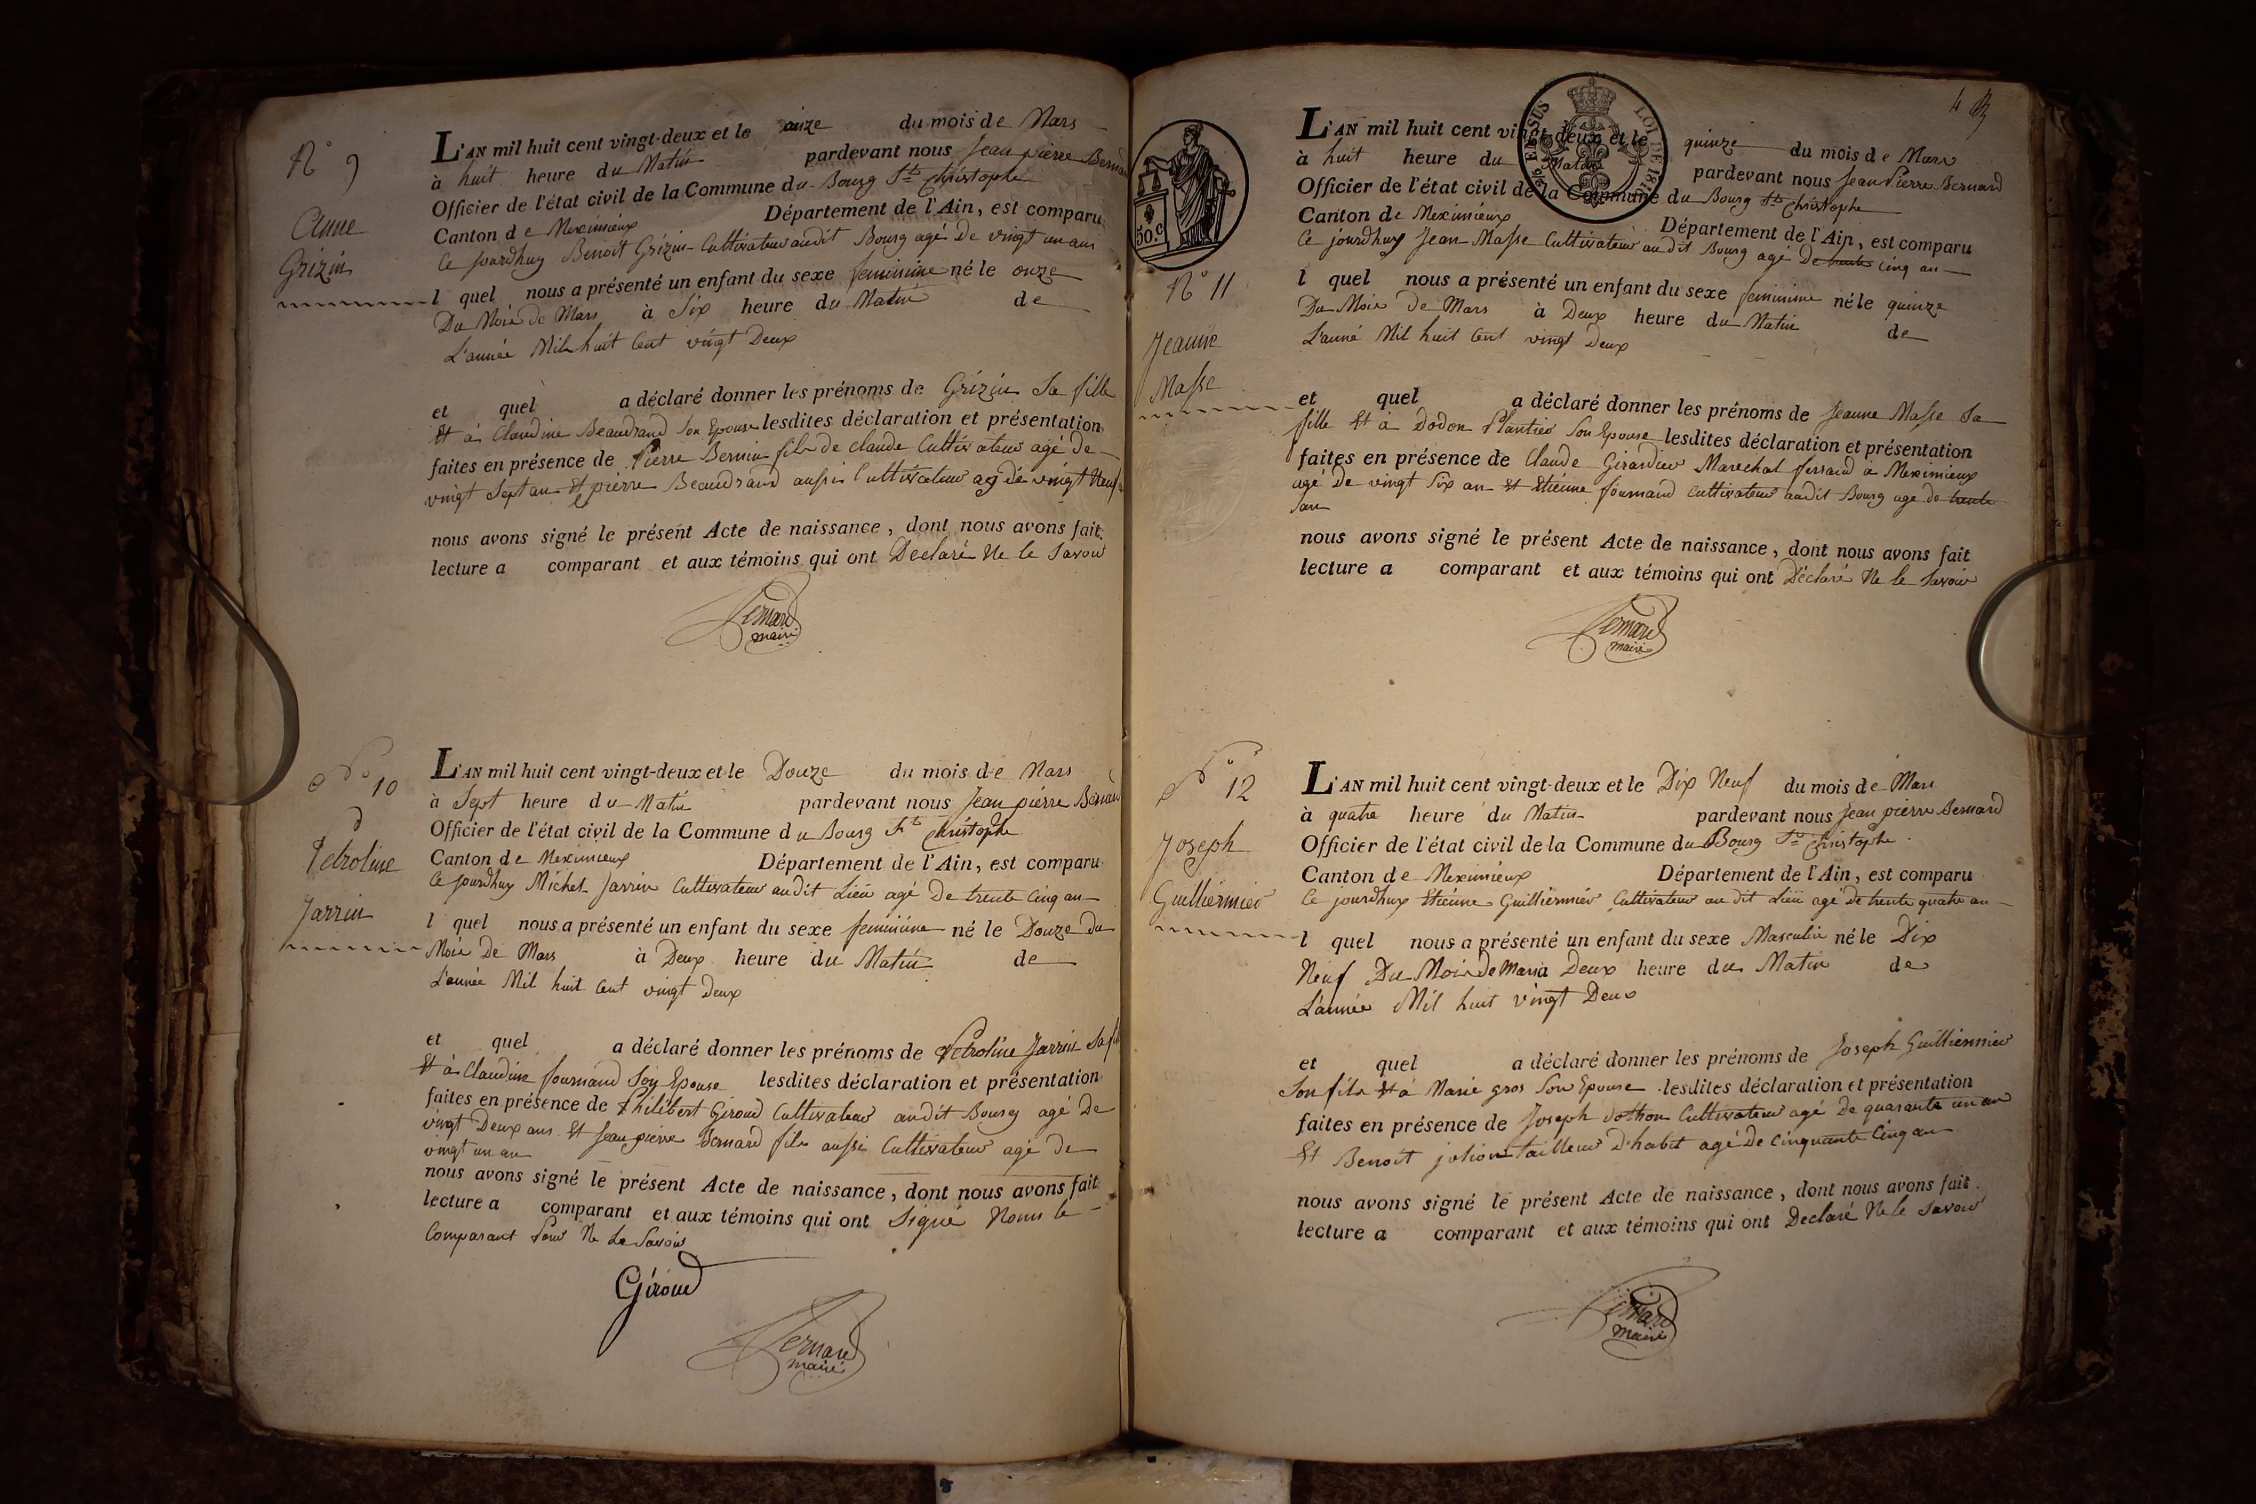 N° 9
Anne
Grizin
L'AN mil huit cent vingt-deux et le onze du mois de Mars
à huit heure du Matin pardevant nous Jean pierre Bernard
Officier de l'état civil de la Commune du Bourg St Christophe
Canton de Meximieux Département de l'Ain, est comparu
Ce jourdhuy Benoit Grizin Cultivateur audit Bourg agé De vingt un ans
l quel nous a présenté un enfant du sexe feminime né le onze
Du Mois de Mars à Six heure du Matin de
L'année Mil huit Cent vingt Deux
et quel a déclaré donner les prénoms de Grizin Sa fille
Et à Claudine Beaudrand Son Epouse lesdites déclaration et présentation
faites en présence de Pierre Bernin fils de Claude Cultivateur agé de
vingt Sept an Et pierre Beaudrand aussi Cultivateur agé de vingt Neuf
nous avons signé le présent Acte de naissance, dont nous avons fait
lecture a comparant et aux témoins qui ont Declaré Ne le Savoir
Bernard
maire
N° 10
Petroline
Jarrin
L'AN mil huit cent vingt-deux et le Douze du mois de Mars
à Sept heure du Matin pardevant nous Jean pierre Bernard
Officier de l'état civil de la Commune du Bourg St Christophe
Canton de Meximieux Département de l'Ain, est comparu
Ce jourdhuy Michel Jarrin Cultivateur audit Lieu agé De trente Cinq an
l quel nous a présenté un enfant du sexe feminine né le Douze du
Mois De Mars à Deux heure du Matin de
L'année Mil huit Cent vingt Deux
et quel a déclaré donner les prénoms de Petroline Jarrin Sa
Et à Claudine fournand Son Epouse lesdites déclaration et présentation
faites en présence de Philibert Giroud Cultivateur audit Bourg agé De
vingt Deux ans Et Jean pierre Bernard fils aussi Cultivateur agé de
vingt un an
nous avons signé le présent Acte de naissance, dont nous avons fait
lecture a comparant et aux témoins qui ont Signé Nonn le
Comparant Pour Ne Le Savoir
Giroud
Bernard
maire
4
50.c
LOI DE 1816
N° 11
Jeanne
Masse
L'AN mil huit cent vingt-deux et le quinze du mois de Mars
à huit heure du Matin pardevant nous Jean Pierre Bernard
Officier de l'état civil de la Commune du Bourg St Christophe
Canton de Meximieux Département de l'Ain, est comparu
Ce jourdhuy Jean Masse Cultivateur audit Bourg agé De trente cinq an
l quel nous a présenté un enfant du sexe feminime né le quinze
Du Mois De Mars à Deux heure du Matin de
L'anné Mil huit Cent vingt Deux
et quel a déclaré donner les prénoms de Jeanne Masse Sa
fille Et à Dodon Plantier Son Epouse lesdites déclaration et présentation
faites en présence de Claude Girardier Marechal ferrand à Meximieux
agé De vingt Six an Et Etienne fournand Cultivateur audit Bourg age de trente
nous avons signé le présent Acte de naissance, dont nous avons fait
lecture a comparant et aux témoins qui ont Déclaré Ne le Savoir
Bernard
maire
N° 12
Joseph
Guilliermier
L'AN mil huit cent vingt-deux et le Dix Neuf du mois de Mars
à quatre heure du Matin pardevant nous Jean pierre Bernard
Officier de l'état civil de la Commune du Bourg St Christophe
Canton de Meximieux Département de l'Ain, est comparu
Ce jourdhuy Etienne Guilliermier Cultivateur au dit Lieu agé De trente quatre an
l quel nous a présenté un enfant du sexe Masculin né le Dix
Neuf Du Mois De Mars à Deux heure du Matin de
L'année Mil huit vingt Deux
et quel a déclaré donner les prénoms de Joseph Guilliermier
Son fils Et à Marie gros Son Epouse lesdites déclaration et présentation
faites en présence de Joseph Cultivateur agé De quarante un an
Et Benoit jolion tailleur D'habit agé De Cinquante Cinq an
nous avons signé le présent Acte de naissance, dont nous avons fait
lecture a comparant et aux témoins qui ont Declaré Ne le Savoir
Bernard
maire